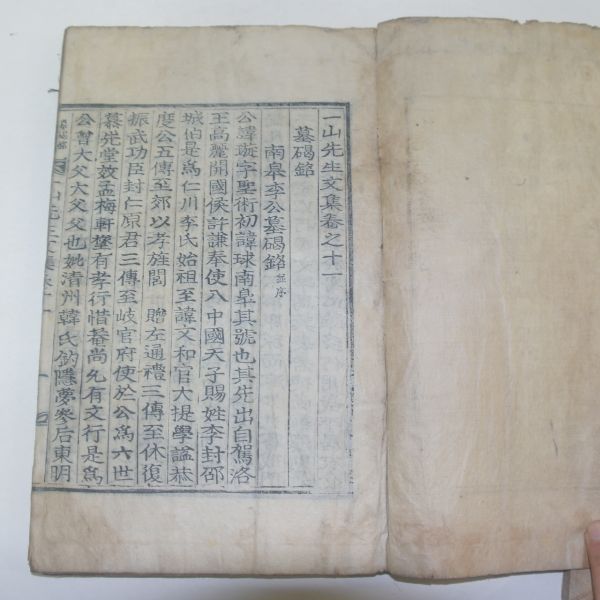 一山先生文集卷之十一
墓碣銘
南皐李公墓碣銘 並序
公諱璇字聖術初諱球南皐其號也其先出自駕洛
王高麗開國侯許謙奉使入中國天子賜姓李封邵
城伯是爲仁川李氏始祖至諱文和官大提學諡恭
度公五傳至郊以孝旌閭 贈左通禮三傳至休復
振武功臣封仁原君三傳至岐官府使於公爲六世
慕先堂效孟梅軒 有孝行惜菴尚允有文行是爲
公曾大父大父父也妣清州韓氏釣隱夢參后東明